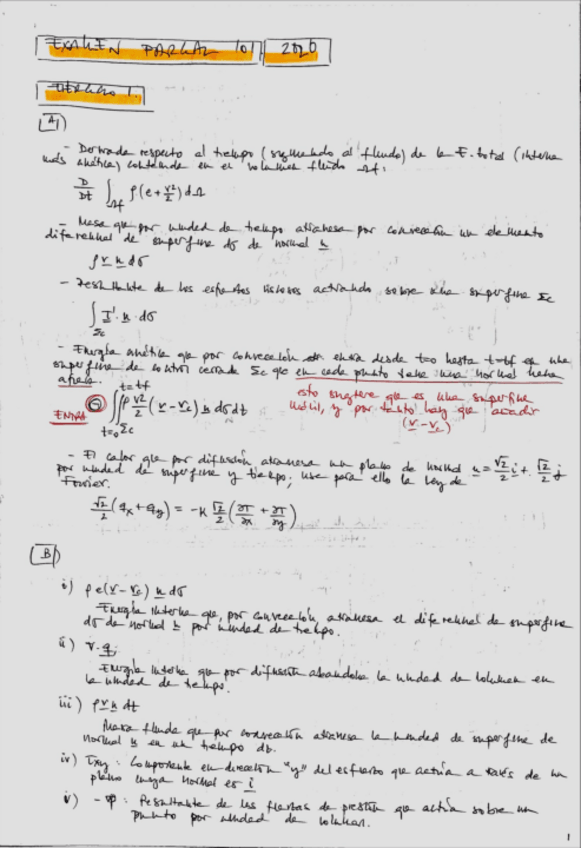 EXAMEN PARCIAL 2020
EJERCICIO 1.
A)
- Derivada respecto al tiempo (siguiendo al fluido) de la E. total (interna
más cinética) contenida en el volumen fluido Ωf:
D/Dt ∫Ωf ρ(e+v²/2)dΩ
- Masa que por unidad de tiempo atraviesa por convección un elemento
diferencial de superficie dσ de normal n
ρ v n dσ
- Resultante de los esfuerzos viscosos actuando sobre una superficie Σc
∫Σc τ' · n · dσ
- Energía cinética que por convección entra desde t=0 hasta t=tf en una
superficie de control cerrada Σc que en cada punto tiene una normal hacia
afuera.
esto sugiere que es una superficie
móvil, y por tanto hay que añadir
(v - vc)
ENTRA ⊖ ∫t=0 t=tf ∫Σc ρ v²/2 (v - vc) n dσ dt
- El calor que por difusión atraviesa un plano de normal n = √2/2 i + √2/2 j
por unidad de superficie y tiempo; use para ello la ley de
Fourier.
√2/2 (qx + qy) = -K √2/2 (∂T/∂x + ∂T/∂y)
B)
i) ρ e (v - vc) n dσ
Energía interna que, por convección, atraviesa el diferencial de superficie
dσ de normal n por unidad de tiempo.
ii) ∇·q
Energía interna que por difusión abandona la unidad de volumen en
la unidad de tiempo.
iii) ρ v n dt
Masa fluida que por convección atraviesa la unidad de superficie de
normal n en un tiempo dt.
iv) τxy: Componente en dirección "y" del esfuerzo que actúa a través de un
plano cuya normal es i
v) -∇p: Resultante de las fuerzas de presión que actúa sobre un
punto por unidad de volumen.
1